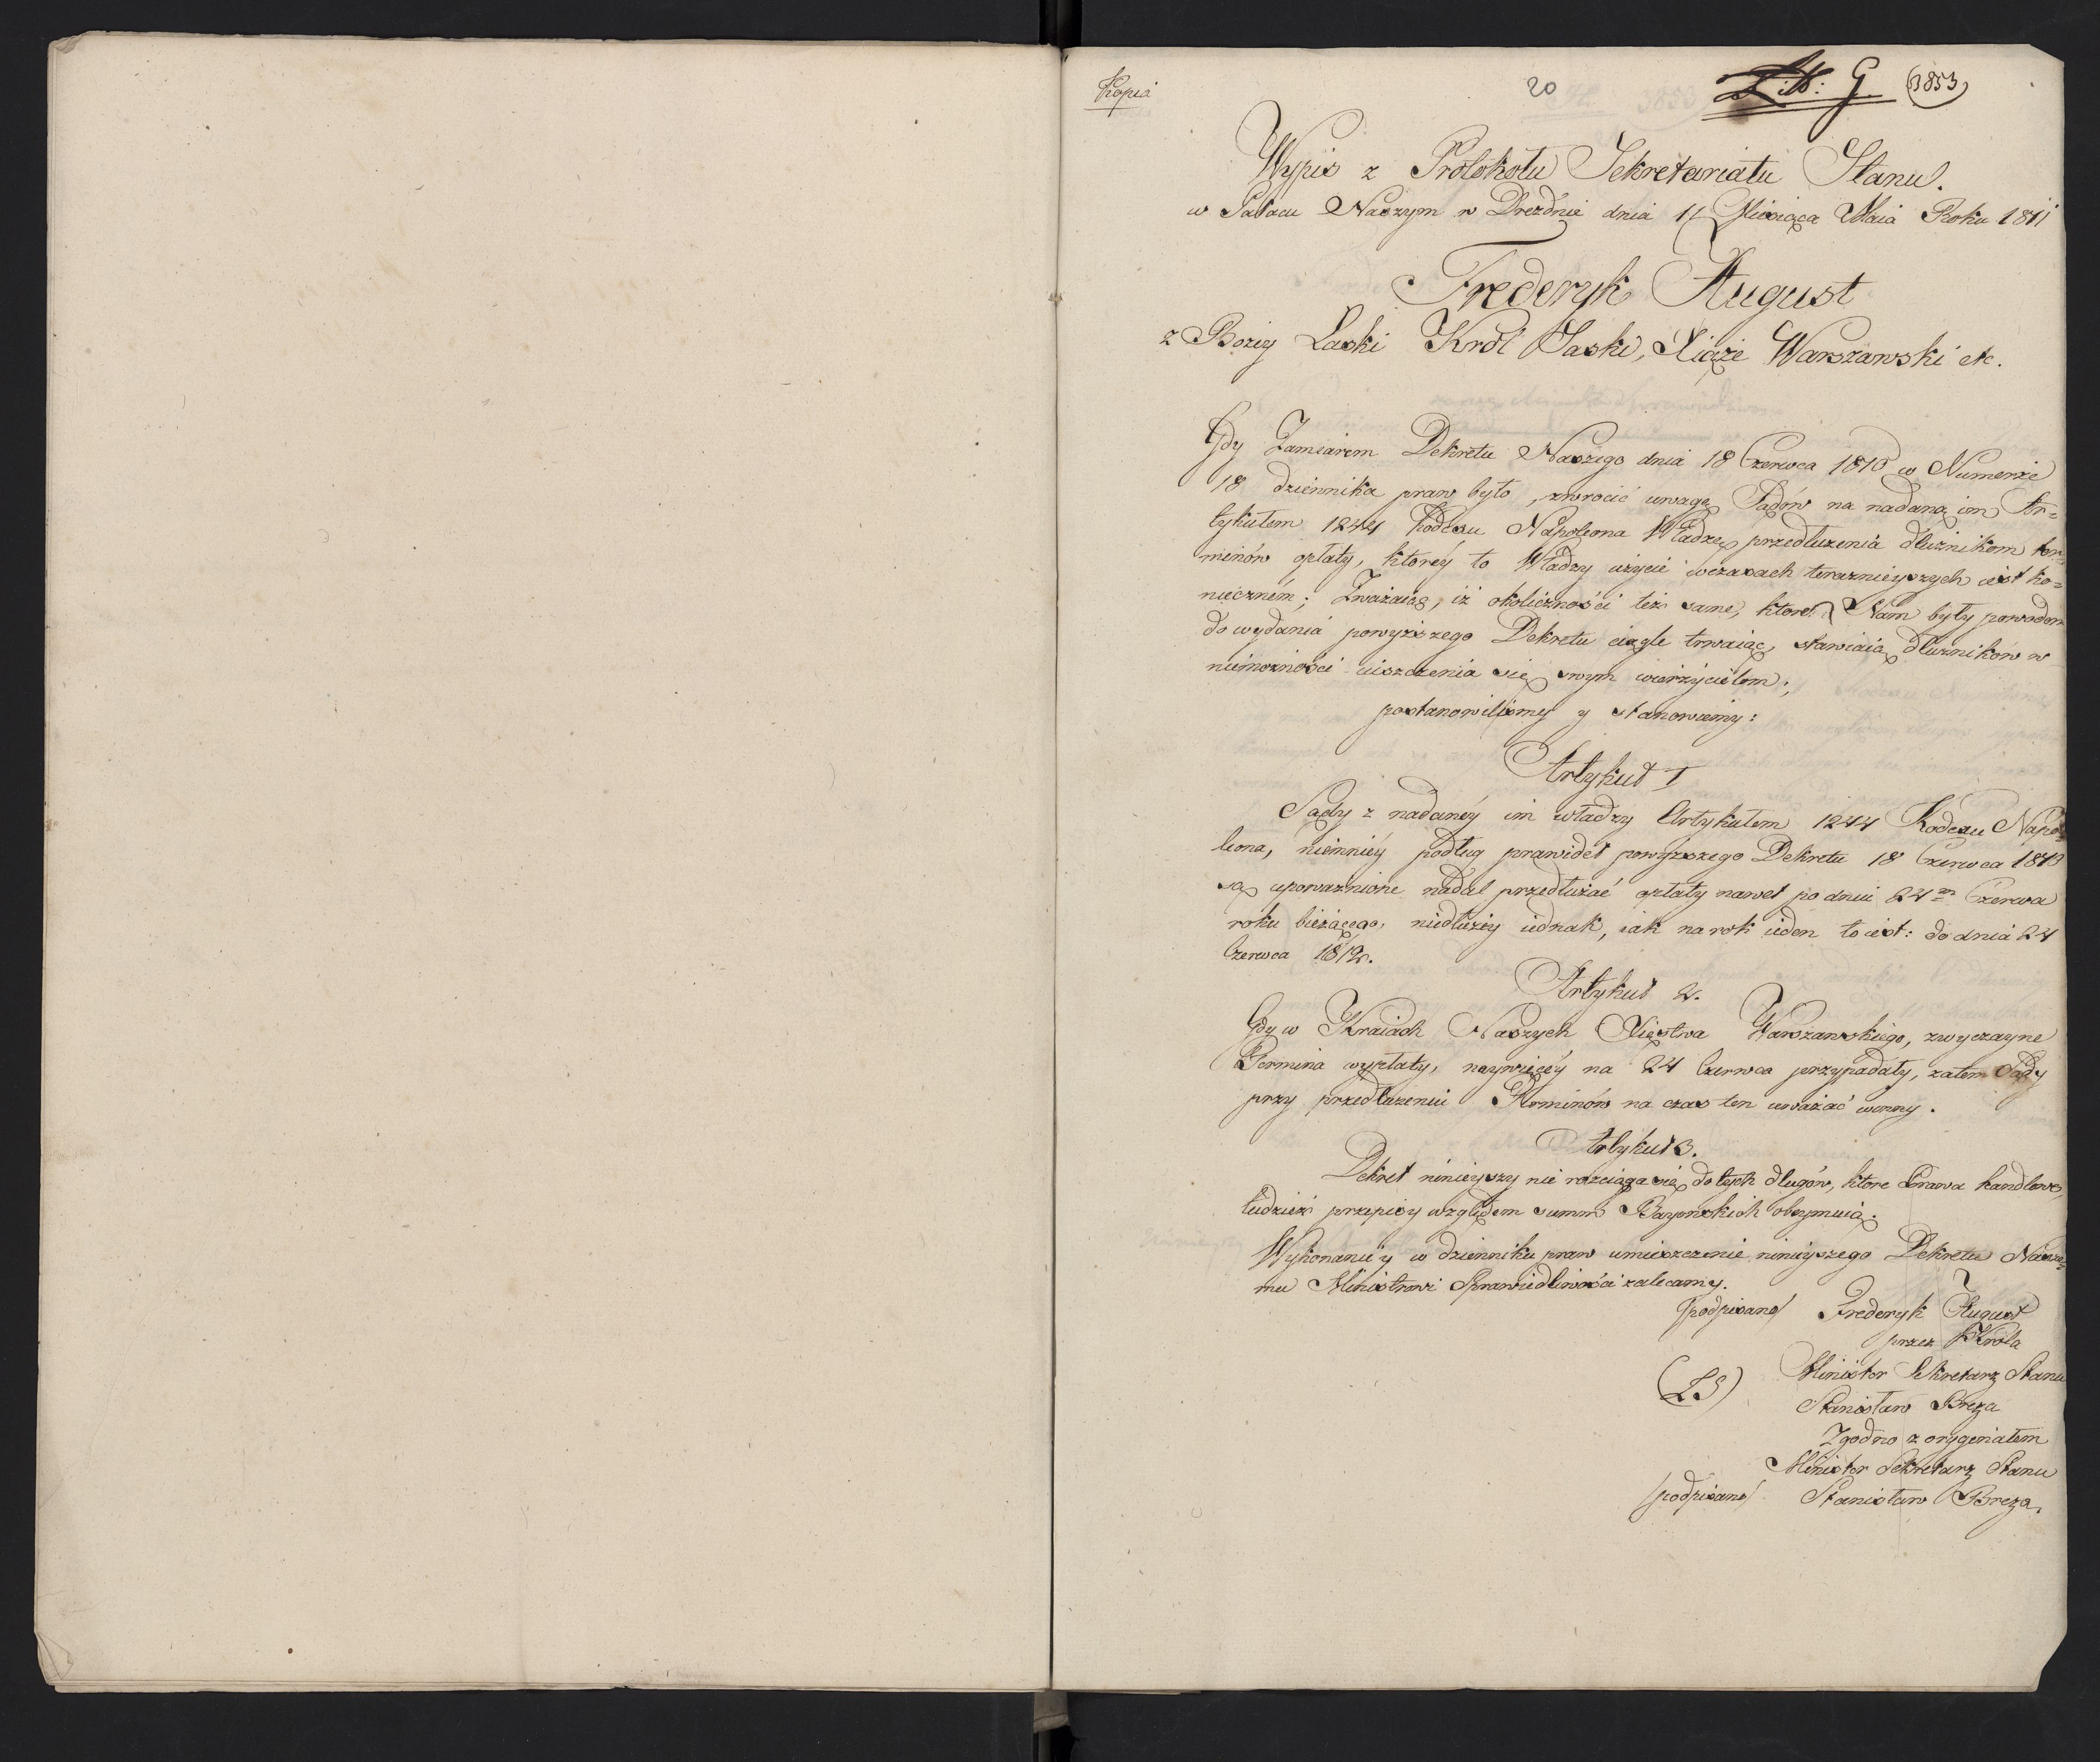 Kopia
20
Litt: G.
3853
Wypis z Protokołu Sekretariatu Stanu.
w Pałacu Naszym w Dreźdnie dnia Miesiąca Maia Roku 1811
Frederyk August
z Bożey Łaski Król Saski, Xiąże Warszawski etc.
Gdy Zamiarem Dekretu Naszego dnia 18 Czerwca 1810 w Numerze
18 dziennika praw było, zwrócić uwagę Sądów na nadaną im Ar=
tykułem 1244 Kodexu Napoleona Władzę przedłużenia dłużnikom ter=
minów opłaty, którey to Władzy użycie w czasach teraznieyszych iest ko=
nieczném; Zważaiąc, iż okoliczności też same, które Nam były powodem
do wydania powyższego Dekretu ciągle trwaiąc, stawiaią dłużników w
niemożności uiszczenia się swym wierzycielom;
postanowiliśmy y stanowiemy:
Artykuł I
Sądy z nadanéy im władzy Artykułem 1244 Kodexu Napo=
leona, niemniéy podług prawideł powyższego Dekretu 18 Czerwca 1810
są upoważnione nadal przedłużać opłaty nawet po dniu 24m Czerwca
roku bieżącego, niedłużéy iednak, iak na rok ieden to iest: do dnia 24
Czerwca 1812.
Artykuł 2.
Gdy w Kraiach Naszych Xięstwa Warszawskiego, zwyczayne
Termina wypłaty, naywięcéy na 24 Czerwca przypadały, zatem Sądy
przy przedłużeniu Terminów na czas ten uważać winny.
Artykuł 3.
Dekret ninieyszy nie rozciąga się do tych długów, które Prawa handlowe,
tudzież przepisy względem summ Bayońskich obeymuią.
Wykonanie y w dzienniku praw umieszczenie ninieyszego Dekretu Nasze=
mu Ministrowi Sprawiedliwości zalecamy.
/podpisano/ Frederyk August
przez Króla
Minister Sekretarz Stanu
(LS)
Stanisław Breza
Zgodno z oryginałem
Minister Sekretarz Stanu
/podpisano/ Stanisław Breza.